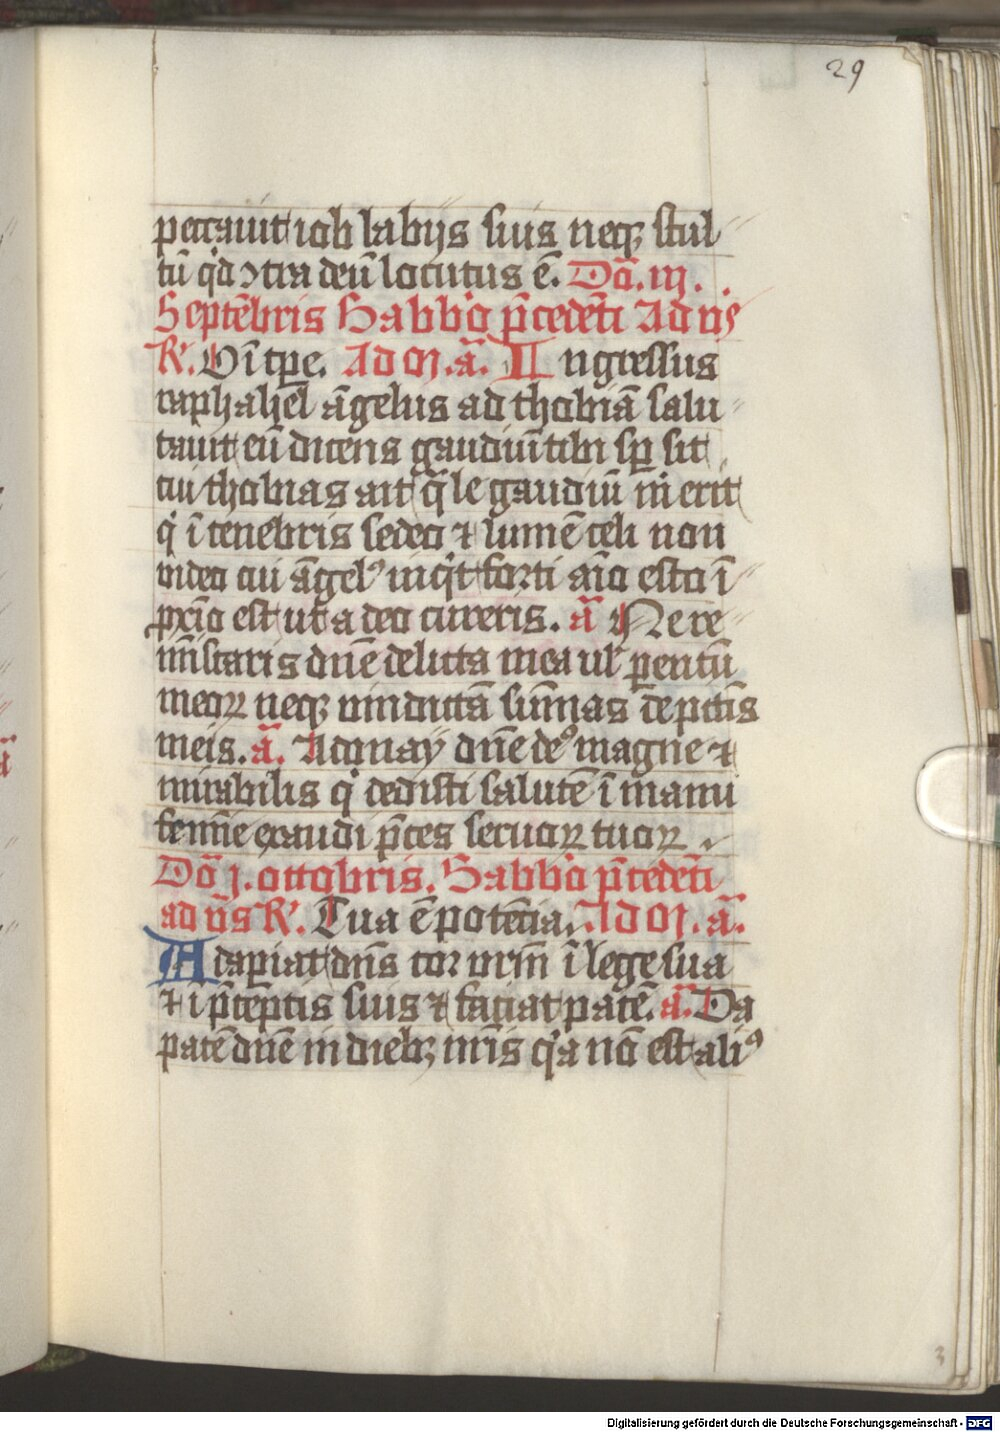 29
peccauit iob labijs suis neqꝫ stul
tū qͥd ↄtra deū locutus ē. Dō. iij.
Septēbris Sabbō p̄cedēti Ad vs̄
R̓. Oī tꝑe. Ad m̄. a̅. Ingressus
raphahel āgelus ad thobiā salu
tauit eū dicens gaudiū tibi sꝑ sit
cui thobias ait q̄le gaudiū m̄ erit
qͥ ī tenebris sedeo ⁊ lumē celi non
video cui āgelꝰ inqͥt forti aīo esto ī
ꝓxīo est ut a deo cureris. a̅ Ne re
miīscaris dn̄e delicta mea ul̓ parentū
meoꝝ neqꝫ vindictā sūmas de pctīs
meis. a̅. Adonay dn̄e deꝰ magne ⁊
mirabilis qͥ dedisti salutē ī manu
femīe exaudi p̄ces seruoꝝ tuoꝝ.
Dō j. octobris. Sabbō p̄cedēti
ad vs̄ R̓. Tua ē potētia. Ad m̄. a̅.
Adaꝑiat dn̄s cor vrm̄ ī lege sua
⁊ ī p̄ceptis suis ⁊ faciat pacē. a̅. Da
pacē dn̄e in diebꝫ nr̄is qͥa nō est aliꝰ
3
Digitalisierung gefördert durch die Deutsche Forschungsgemeinschaft - DFG